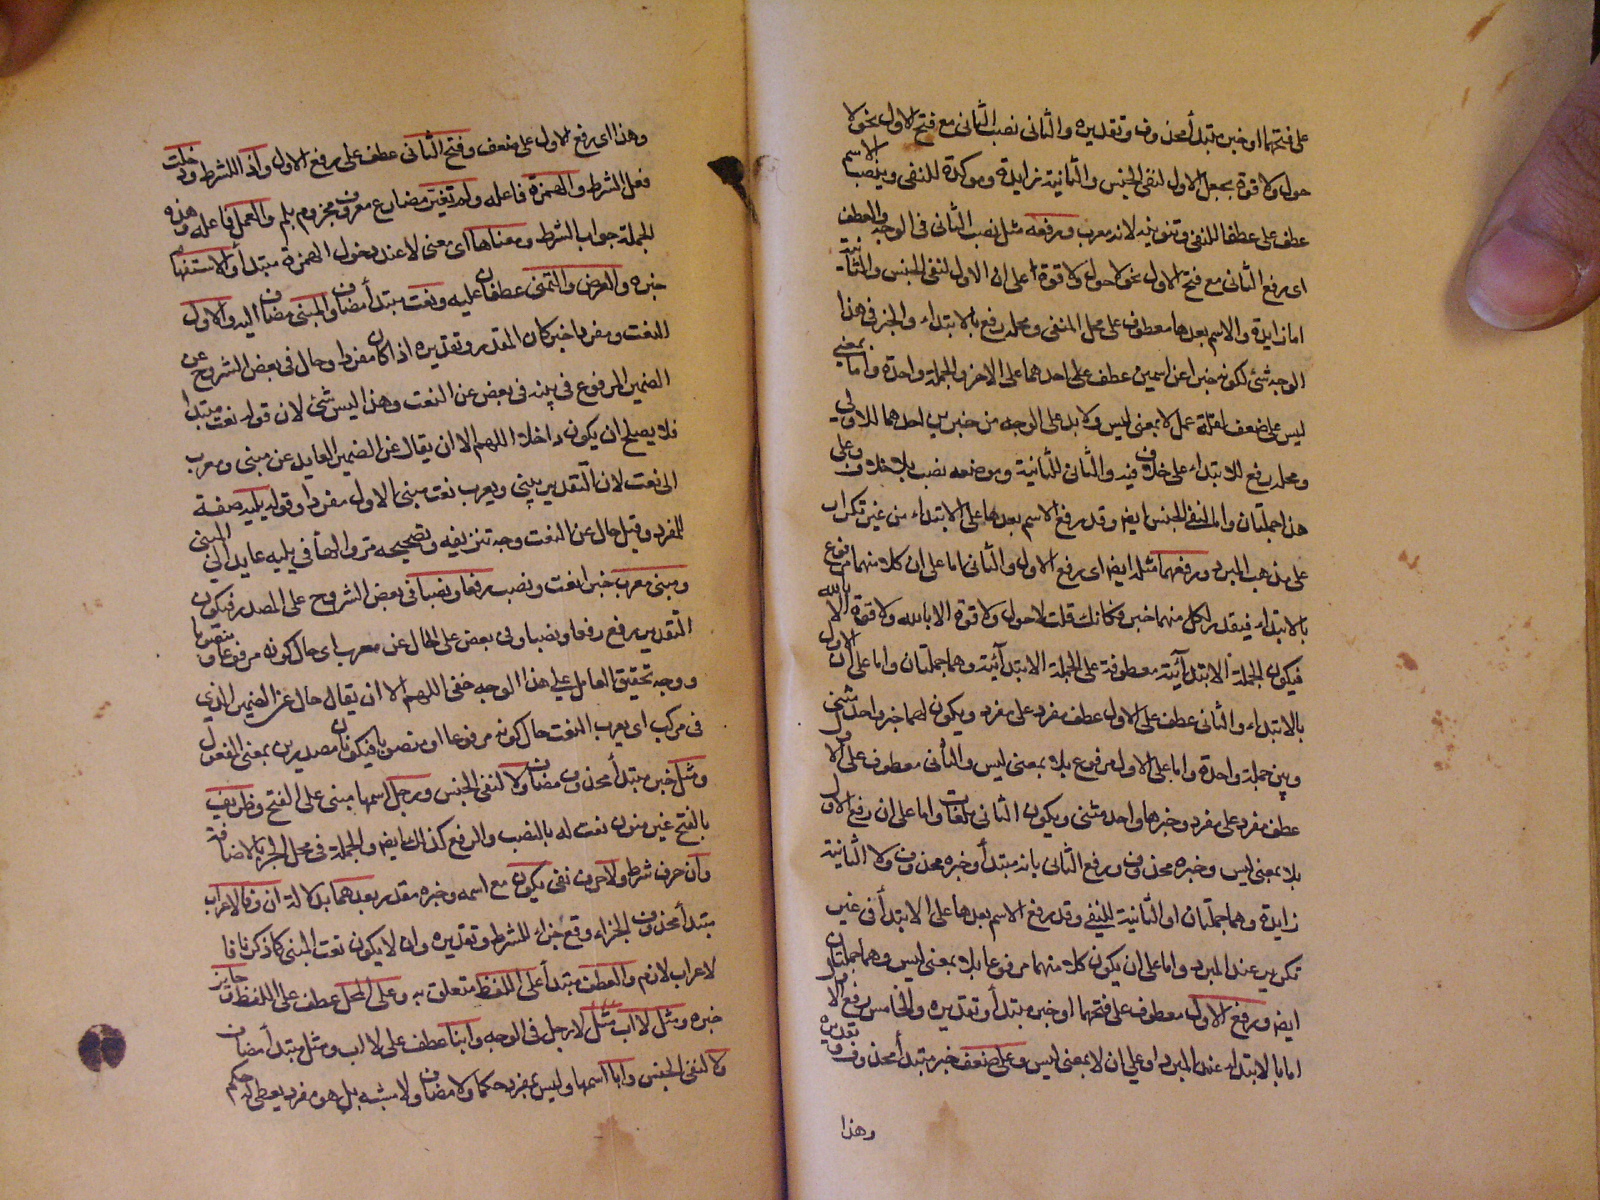 على فتحهما او خبر مبتدأ محذوف وتقديره والثانى نصب الثانى مع فتح الاول نحو لا
حول ولا قوة بجعل الاول لنفى الجنس والثانية زايدة ومؤكدة للنفى وينصب الاسم
عطف على عطفا للنفى وتنوينه لانه معرب ورفعه مثل نصب الثانى فى الوجه والعطف
اى رفع الثانى مع فتح الاول نحو لا حول ولا قوة اعلى ان الاول لنفى الجنس والثانية
اما زايدة والاسم بعدها معطوف على محل المنفى ومحله رفع بالابتداء والخبر فى هذا
الوجه شئ لكونه خبرا عن اسمين عطف على احدهما على الاخر والجملة واحدة واما بمعنى
ليس على ضعف لقلة عمل لا بمعنى ليس ولا بد على الوجه من خبرين احدهما للاولى
ومحله رفع للابتداء على خلاف فيه والثانى للثانية وموضعه نصب بلا خلاف وعلى
هذا جملتان واما لنفى الجنس ايض وقد رفع الاسم بعدها على الابتداء من غير تكرار
على مذهب المبرد ورفعهما مثله ايض اى رفع الاول والثانى اما على ان كلا منهما مرفوع
بالابتداء فيقدر لكل منهما خبر فكانك قلت لا حول ولا قوة الا بالله ولا قوة الا بالله
فيكون الجملة الابتدائية معطوفة على الجملة الابتدائية وهما جملتان واما على ان الاول
بالابتداء والثانى عطف على الاول عطف مفرد على مفرد ويكون لهما خبر واحد مثنى
وهى جملة واحدة واما على الاول مرفوع بلا بمعنى ليس والثانى معطوف على الاول
عطف مفرد على مفرد وخبرها واحد مثنى ويكون الثانى ملغاة واما على ان رفع الاول
بلا بمعنى ليس وخبره محذوف ورفع الثانى بانه مبتدأ وخبره محذوف ولا الثانية
زايدة وهما جملتان او الثانية للنفى وقد رفع الاسم بعدها على الابتدأ فى غير
تكرير عند المبرد واما على ان يكون كلا منهما مرفوعا بلا بمعنى ليس وهما جملتان
ايض ورفع الاول معطوف على فتحهما او خبر مبتدأ وتقديره والخامس رفع الاول
اما بالابتداء عند المبرد او على ان لا بمعنى ليس وعلى ضعف خبر مبتدأ محذوف وتقديره
وهذا
وهذا اى رفع الاول على ضعف وفتح الثانى عطف على رفع الاول واذا للشرط ودخلت
فعل الشرط والهمزة فاعله ولم تغير مضارع معروف مجزوم بلم والعمل فاعله وهذه
الجملة جواب الشرط ومعناها اى معنى لا عند دخول الهمزة مبتدأ والاستفهام
خبره والعرض والتمنى عطفان عليه ونعت مبتدأ مضاف والمبنى مضاف اليه والاول
النعت ومفردا خبر كان المقدر وتقديره اذا كان مفردا وحال فى بعض الشروح عن
الضمير المرفوع فى يبنه فى بعض عن النعت وهذا ليس شئ لان قوله نعت مبتدا
فلا يصلح ان يكون داخلا اللهم الا ان يقال عن الضمير العايد عن مبنى ومعرب
الى نعت لان التقدير يبنى ويعرب نعت مبنى الاول مفردا وقوله يليه صفة
للمفرد وقيل حال عن النعت وجه تنزيفه وتصحيحه مر والهأ فى يليه عايد الى المبنى
ومبنى معرب خبر النعت ونصب رفعا ونصبا فى بعض الشروح على المصدر فيكون
التقدير يرفع رفعا ونصبا وفى بعض على الحال عن معرب اى حال كونه مرفوعا او منصوبا
ووجه تحقيق العامل على هذا الوجه خفى اللهم الا ان يقال حال عن الضمير الذى
فى مركب اى يعرب النعت حال كونه مرفوعا او منصوبا فيكونان مصدرين بمعنى المفعول
ومثل خبر مبتدأ محذوف مضاف ولا لنفى الجنس ورجل اسمها مبنى على الفتح وظريف
بالفتح غير منون نعت له بالنصب والرفع كذلك ايض والجملة فى محل الجر بالاضافة
وان حرف شرط ولا حرف نفى يكون مع اسمه وخبره مقدر بعدهما بدلالة ان وفالاعراب
مبتدأ محذوف الجزاء وقع جزاء للشرط وتقديره وان لا يكون نعت المبنى كما ذكرنا فا
لاعراب لازم والعطف مبتدأ على اللفظ متعلق به وعلى المحل عطف على اللفظ وجايز
خبره ومثل لا اب مثل لا رجل فى الوجه وابنا عطف على لا اب ومثل مبتدأ مضاف
ولا لنفى الجنس وابا اسمها وليس بمفرد حكما ولا مضاف ولا مشبه بل هو مفرد يعطى له حكم